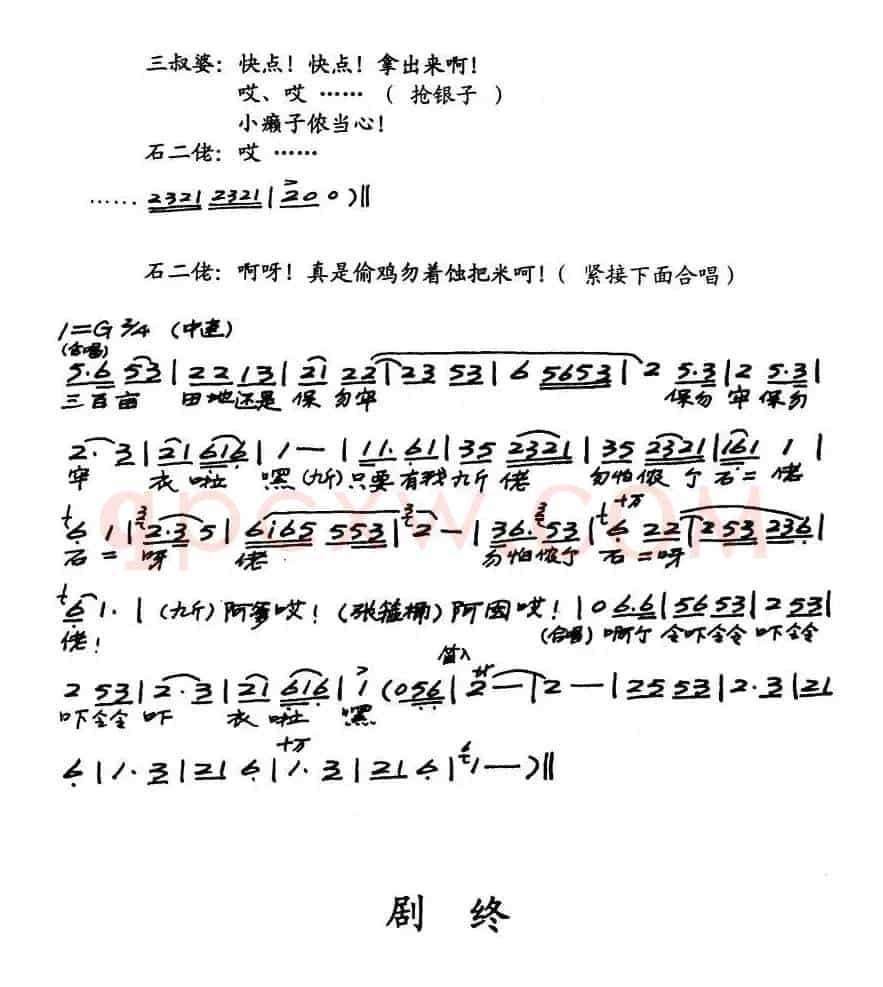 三叔婆：快点！快点！拿出来啊！
哎、哎 ……（ 抢银子 ）
小癞子侬当心！
石二佬：哎 ……
…… 2321 2321 | 2 0 0 )‖
石二佬：啊呀！真是偷鸡勿着蚀把米呵！（ 紧接下面合唱）
1=G 3/4 (中速)
(合唱)
5·6 53 | 22 13 | 21 22 | 23 53 | 6 5653 | 2 5·3 | 2 5·3 |
三百亩 田地还是 保 勿牢 保勿 牢 保勿
2· 3 | 21 616 | 1 — | 11· 61 | 35 2321 | 35 2321 | 161 1 |
牢 衣 啦 嘿 (九斤)只要有我九斤 佬 勿怕侬 个 石二 佬
十万
6 1 | 2·3 5 | 6165 553 | 2 — | 36· 53 | 6 22 | 253 236 |
石二 呀 佬 勿怕侬个 石二呀
6 1· | (九斤)阿爹哎！(张箍桶)阿囡哎！| 0 6·6 | 56 53 | 2 53 |
佬！ (合唱) 啊个 令吓令令 吓令令
笛入
2 53 | 2· 3 | 21 616 | 1 (056 | 2 — | 2 — | 25 53 | 2· 3 | 21
吓令令 吓 衣 啦 嘿
十万
6 | 1· 3 | 21 6 | 1· 3 | 21 6 | 1 — )‖
剧 终
qpcxw.com